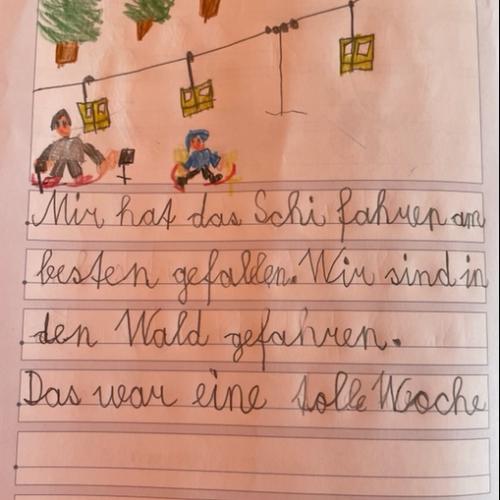 Mir hat das Schi fahren am
besten gefallen. Wir sind in
den Wald gefahren.
Das war eine tolle Woche